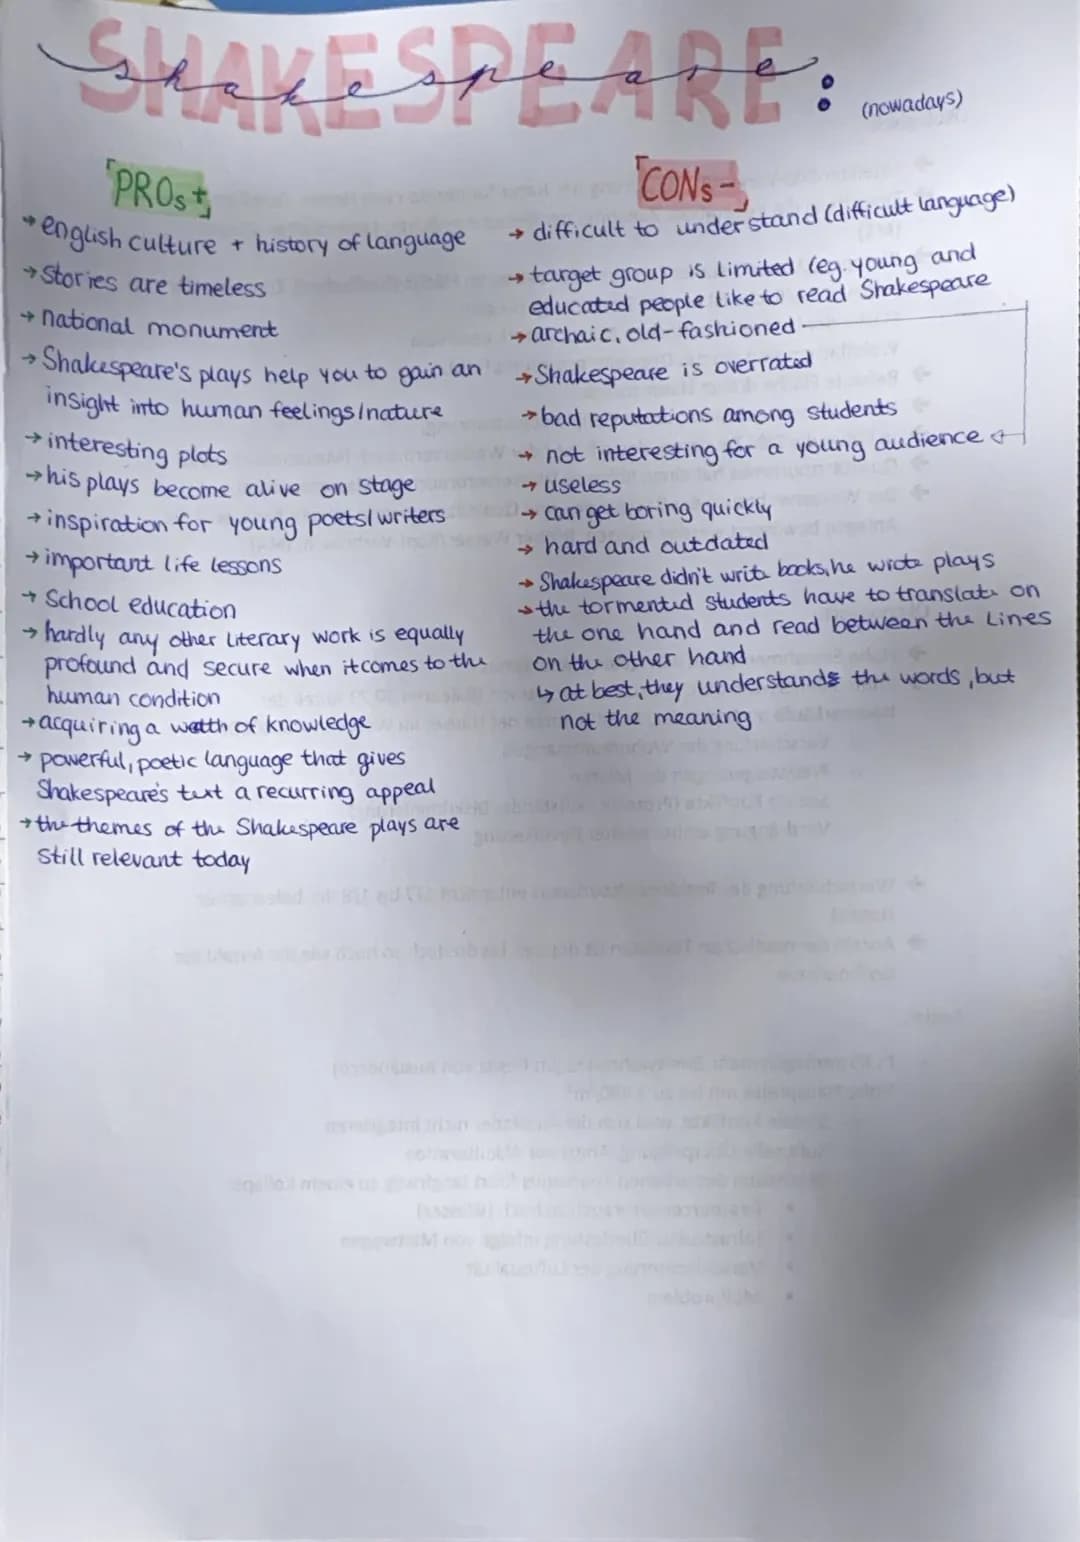 SHAKESPEARE
shakespeare:
(nowadays)
PROs +
→ english culture + history of language
→ Stories are timeless
→ national monument
→ Shakespeare's plays help you to gain an
insight into human feelings/nature
→ interesting plots
→ his plays become alive on stage
→ inspiration for young poets/writers
→ important life lessons
→ School education
→ hardly any other literary work is equally
profound and secure when it comes to the
human condition
→ acquiring a wealth of knowledge
→ powerful, poetic language that gives
Shakespeare's text a recurring appeal
→ the themes of the Shakespeare plays are
still relevant today
CONs -
→ difficult to understand (difficult language)
→ target group is limited (eg. young and
educated people like to read Shakespeare
→ archaic, old-fashioned
→ Shakespeare is overrated
→ bad reputations among students
→ not interesting for a young audience
→ useless
→ can get boring quickly
→ hard and outdated
→ Shakespeare didn't write books, he wrote plays
→ the tormented students have to translate on
the one hand and read between the lines
on the other hand
↳ at best, they understands the words, but
not the meaning